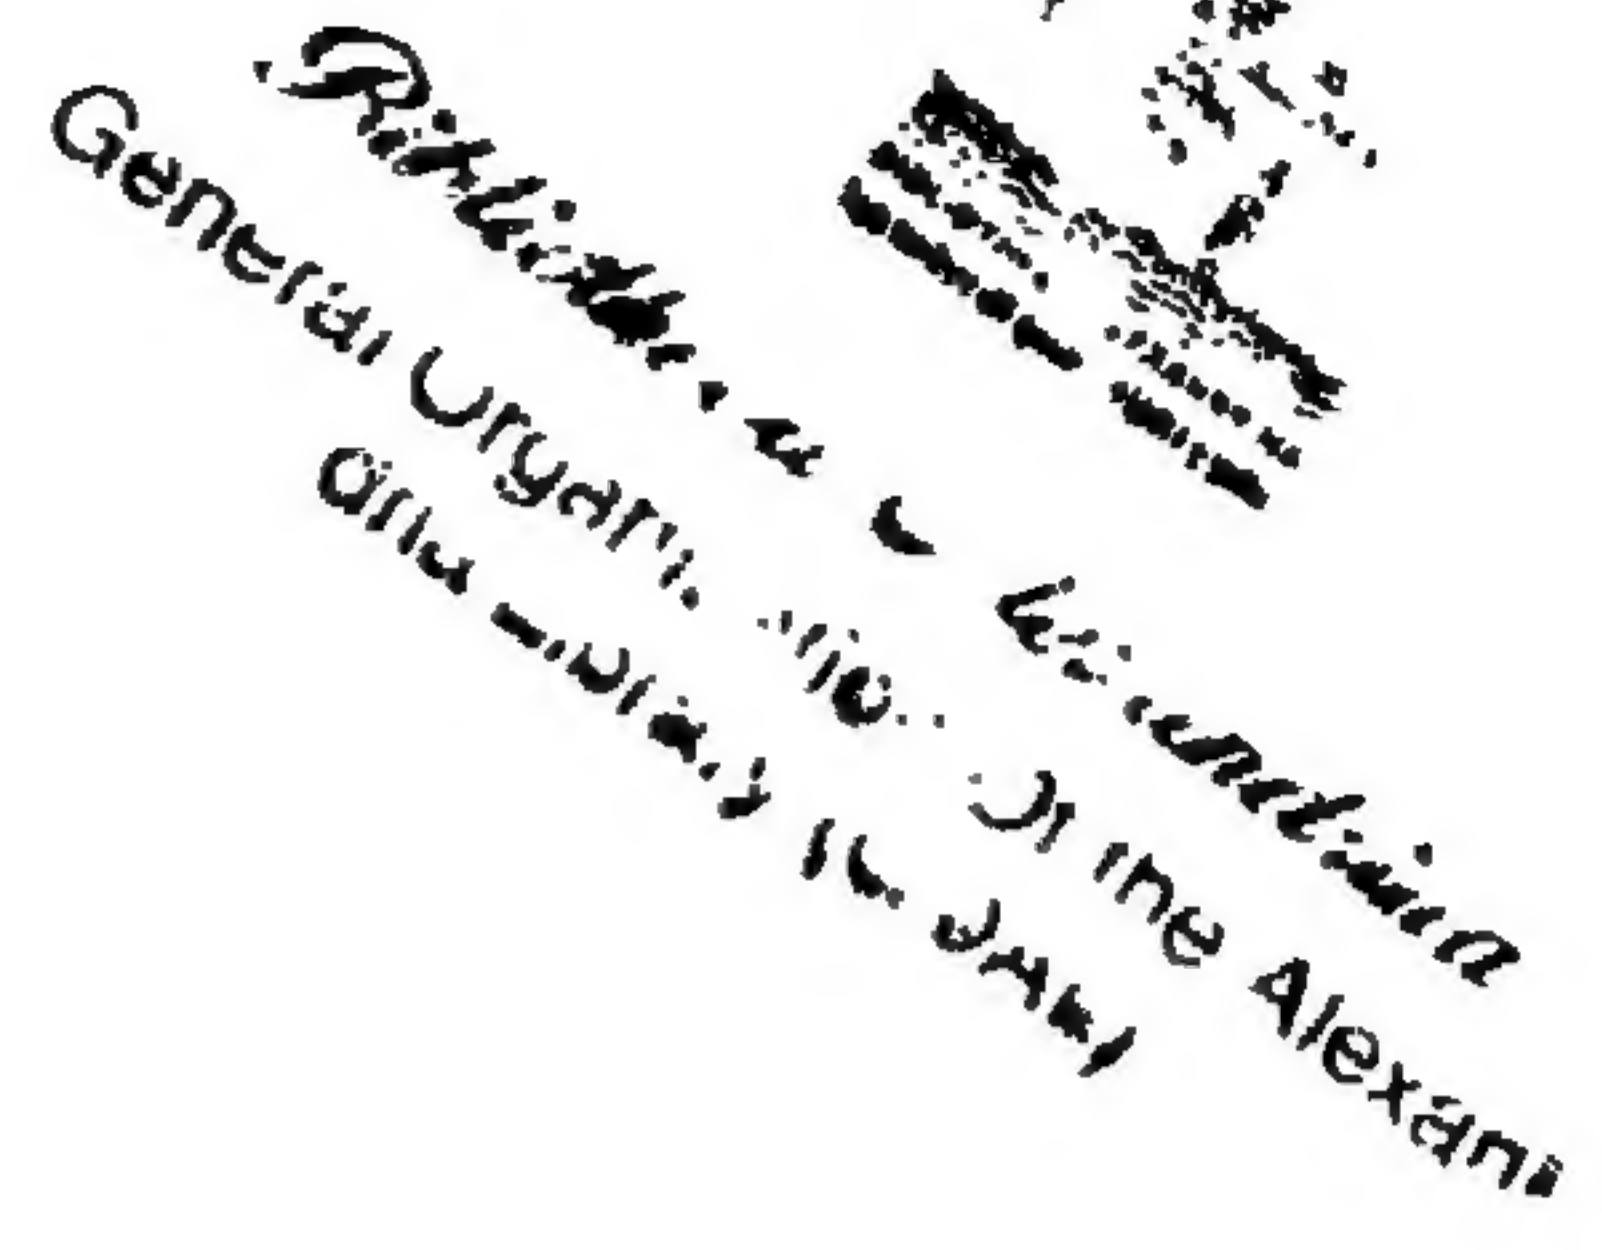 Bibliotheca Alexandrina
General Organization Of the Alexan-
dria Library (GOAL)